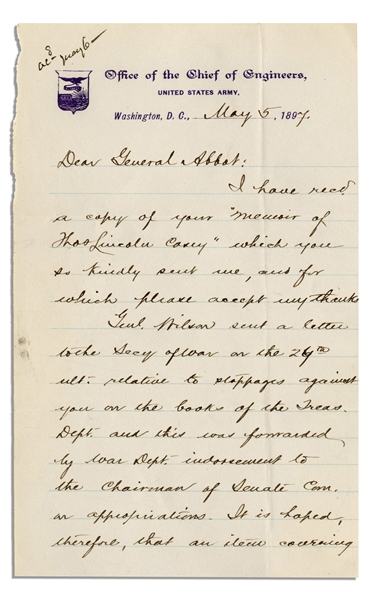 ac'd May 6 —
Office of the Chief of Engineers,
UNITED STATES ARMY,
Washington, D. C., May 5, 1897.
Dear General Abbot:
I have recd.
a copy of your "Memoir of
Thos Lincoln Casey" which you
so kindly sent me, and for
which please accept my thanks
Genl. Wilson sent a letter
to the Secy of War on the 29th
ult. relative to stoppages against
you on the books of the Treas.
Dept. and this was forwarded
by War Dept. indorsement to
the Chairman of Senate Com.
on appropriations. It is hoped,
therefore, that an item covering